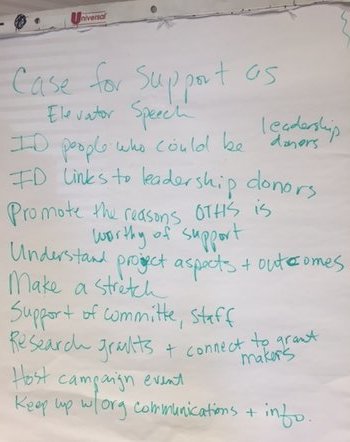 Universal
Case for Support as
Elevator Speech
ID people who could be leadership donors
ID Links to leadership donors
Promote the reasons OTHS is
worthy of support
Understand project aspects + outcomes
Make a stretch
Support of committe, staff
Research grants + connect to grant
makers
Host campaign event
Keep up w/org communications + info.